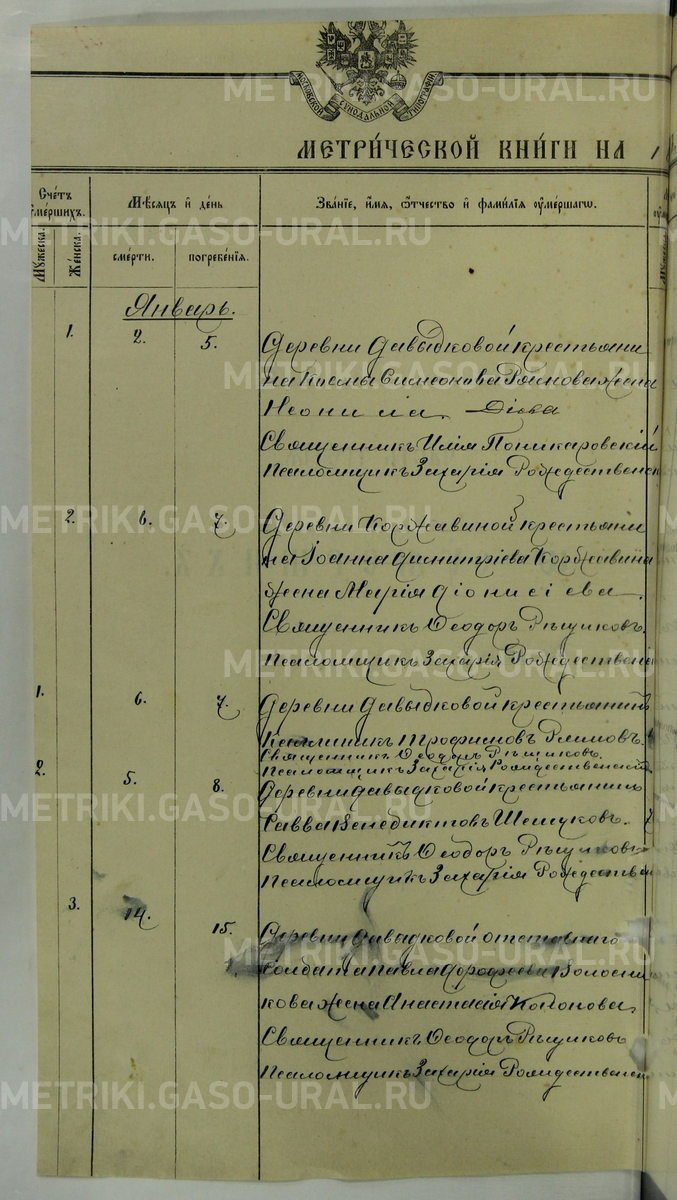 МОСКОВСКОЙ СѴНОДАЛЬНОЙ ТИПОГРАФІИ
МЕТРИ́ЧЕСКОЙ КНИ́ГИ НА 1
Сче́тъ ᲂумершихъ.
Мѣсяцъ и день
Зва́нїе, и́мя, ѻ҆́тчество и҆ фами́лїя ᲂу҆ме́ршагѡ.
Мꙋжеска.
Же́нска.
сме́рти.
погребе́нїя.
Январь.
1. 2. 5. Деревни Давыдковой крестьяни
на Космы Симеонова жена
Неонила
Священникъ Илія Поникаровскій
Псаломщикъ Захарія Рождественск
2. 6. 7. Деревни Коржавиной крестьяни
на Іоанна Димитріева Коржавина
жена Марія Діонисіева.
Священникъ Ѳеодоръ Рѣщиковъ.
Псаломщикъ Захарія Рождественс
1. 6. 7. Деревни Давыдковой крестьянинъ
Трофимовъ
Священникъ Ѳеодоръ Рѣщиковъ.
Псаломщикъ Захарія Рождественскій
2. 5. 8. Деревни Давыдковой крестьянинъ
Савва Венедиктовъ Шешуковъ.
Священникъ Ѳеодоръ Рѣщиковъ
Псаломщикъ Захарія Рождествен
3. 14. 15. Деревни Давыдковой отставнаго
Солдата Павла Дорофеева Волосни
кова жена Анастасія
Священникъ Ѳеодоръ Рѣщиковъ
Псаломщикъ Захарія Рождественск
METRIKI.GASO-URAL.RU